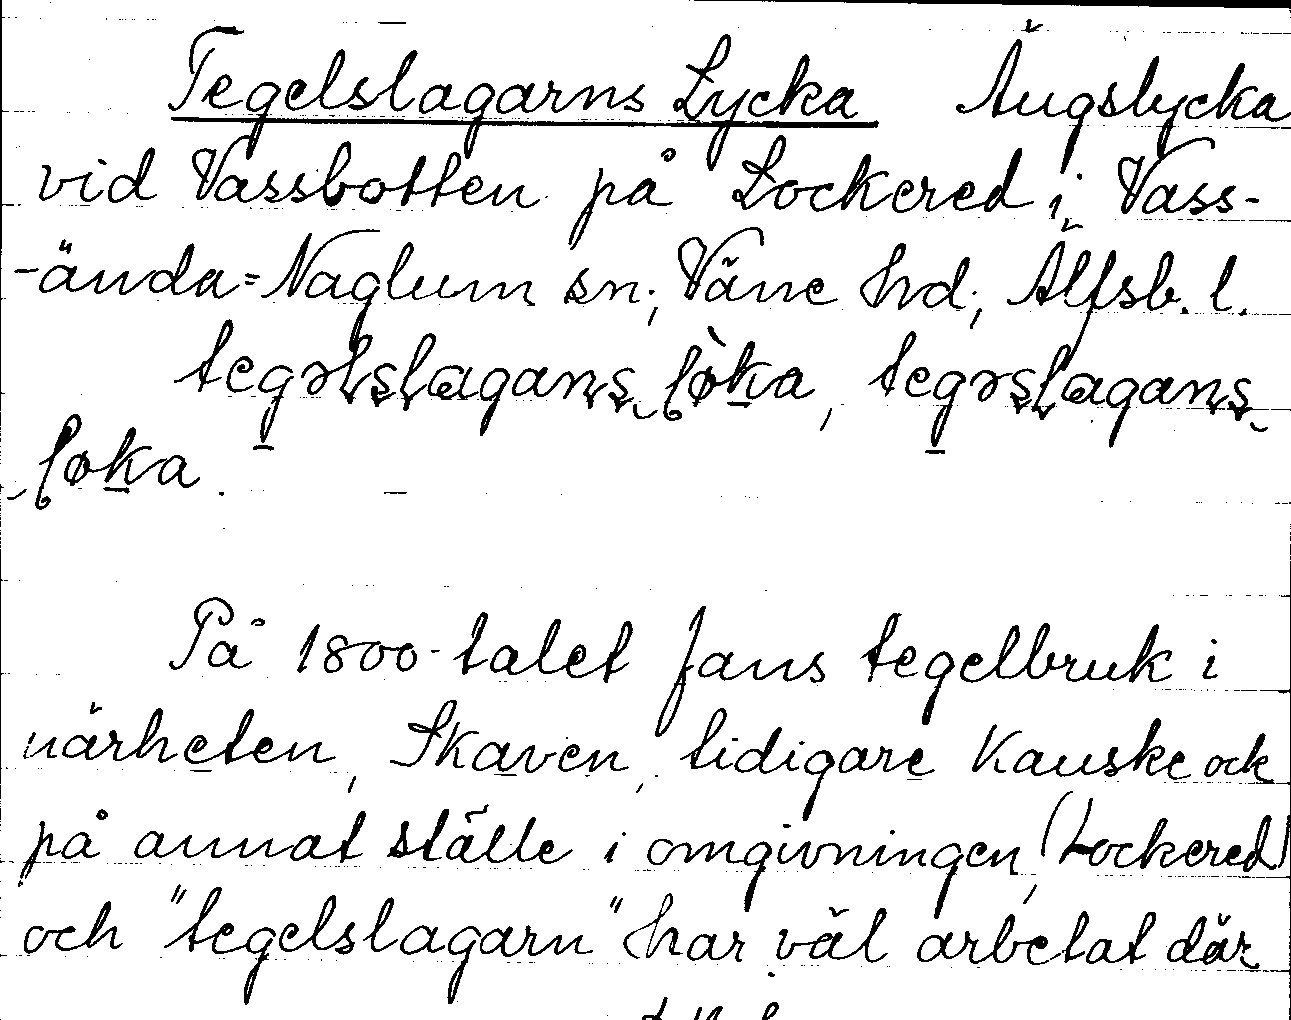 Tegelslagarns Lycka Ängslycka
vid Vassbotten på Lockered i Vass-
-ända=Naglum sn; Väne hd; Älfsb. l.
tegəlslagans løka, tegəslagans
løka.
På 1800-talet fans tegelbruk i
närheten, Skaven, tidigare Kanske ock
på annat ställe i omgivningen, (Lockered)
och "tegelslagarn" har väl arbetat där